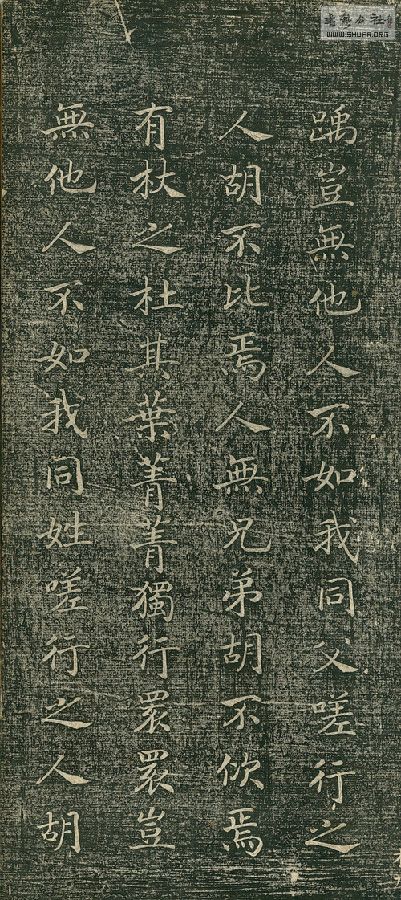 踽豈無他人不如我同父嗟行之
人胡不比焉人無兄弟胡不佽焉
有杕之杜其葉菁菁獨行睘睘豈
無他人不如我同姓嗟行之人胡
WWW.SHUFA.ORG